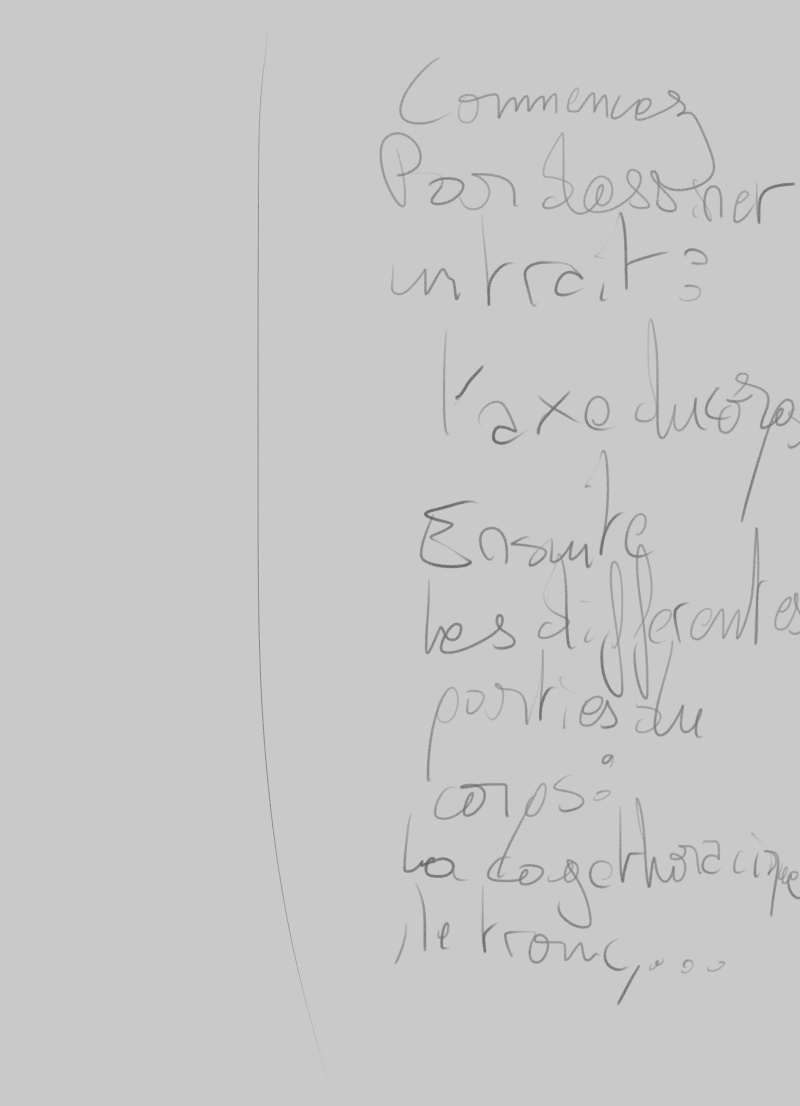 Commencez
Par dessiner
un trait :
l'axe du corps
Ensuite
les différentes
parties du
corps :
La cage thoracique
, le tronc, ...